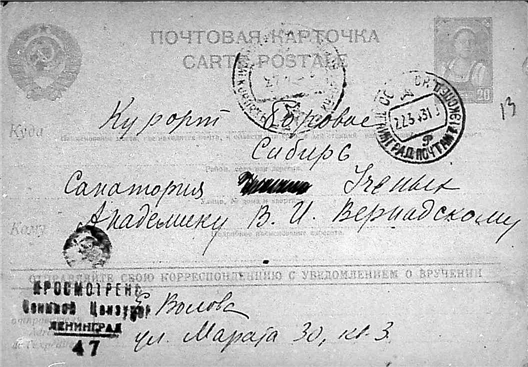 ПОЧТОВАЯ КАРТОЧКА
CARTE POSTALE
20
13
22.3.43
ЛЕНИНГРАД ПОЧТАМТ
Куда Курорт Боровое
Сибирь
Санатория Ученых
Кому Академику В. И. Вернадскому
ОТПРАВЛЯЙТЕ СВОЮ КОРРЕСПОНДЕНЦИЮ С УВЕДОМЛЕНИЕМ О ВРУЧЕНИИ
ПРОСМОТРЕНО
Военной Цензурой
ЛЕНИНГРАД
47
Волова
ул. Марата 30, кв. 3.